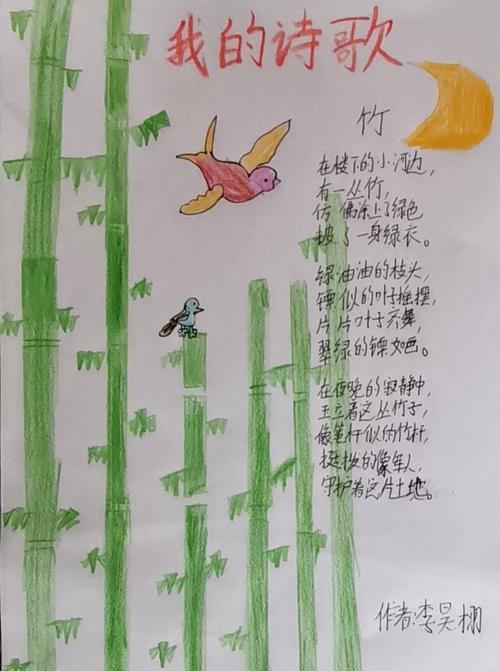 我的诗歌
竹
在楼下的小河边,
有一丛竹,
仿偏涂上了绿色
披了一身绿衣。
绿油油的枝头,
镖似的叶子摇摆,
片片叶子齐舞,
翠绿的镖如画。
在夜晚的寂静中,
王立着这丛竹子,
像笔杆似的竹杆,
挺拔的像军人,
守护着这片土地。
作者:李昊栩